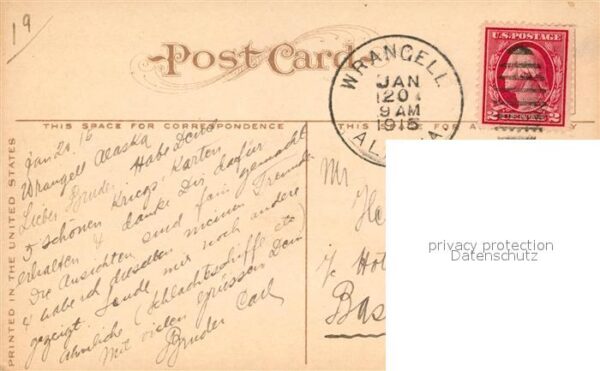 19
Post Card
WRANGELL
JAN
20
9 AM
1915
ALASKA
U.S. POSTAGE
2 CENTS 2
THIS SPACE FOR CORRESPONDENCE
THIS SPACE FOR
PRINTED IN THE UNITED STATES
Jan 20. 15
Wrangell Alaska
Lieber Bruder Habe Deine
5 schönen Kriegs' Karten
erhalten & danke Dir dafür
Die Ansichten sind fain gemacht
& habe ich dieselben meinen Freunde
gezeigt. Sende mir noch andere
ähnliche (Schlachtschiffe etc)
Mit vielen grüssen Dein
Bruder Carl
Mr
He
℅ Hot
Bas
privacy protection
Datenschutz